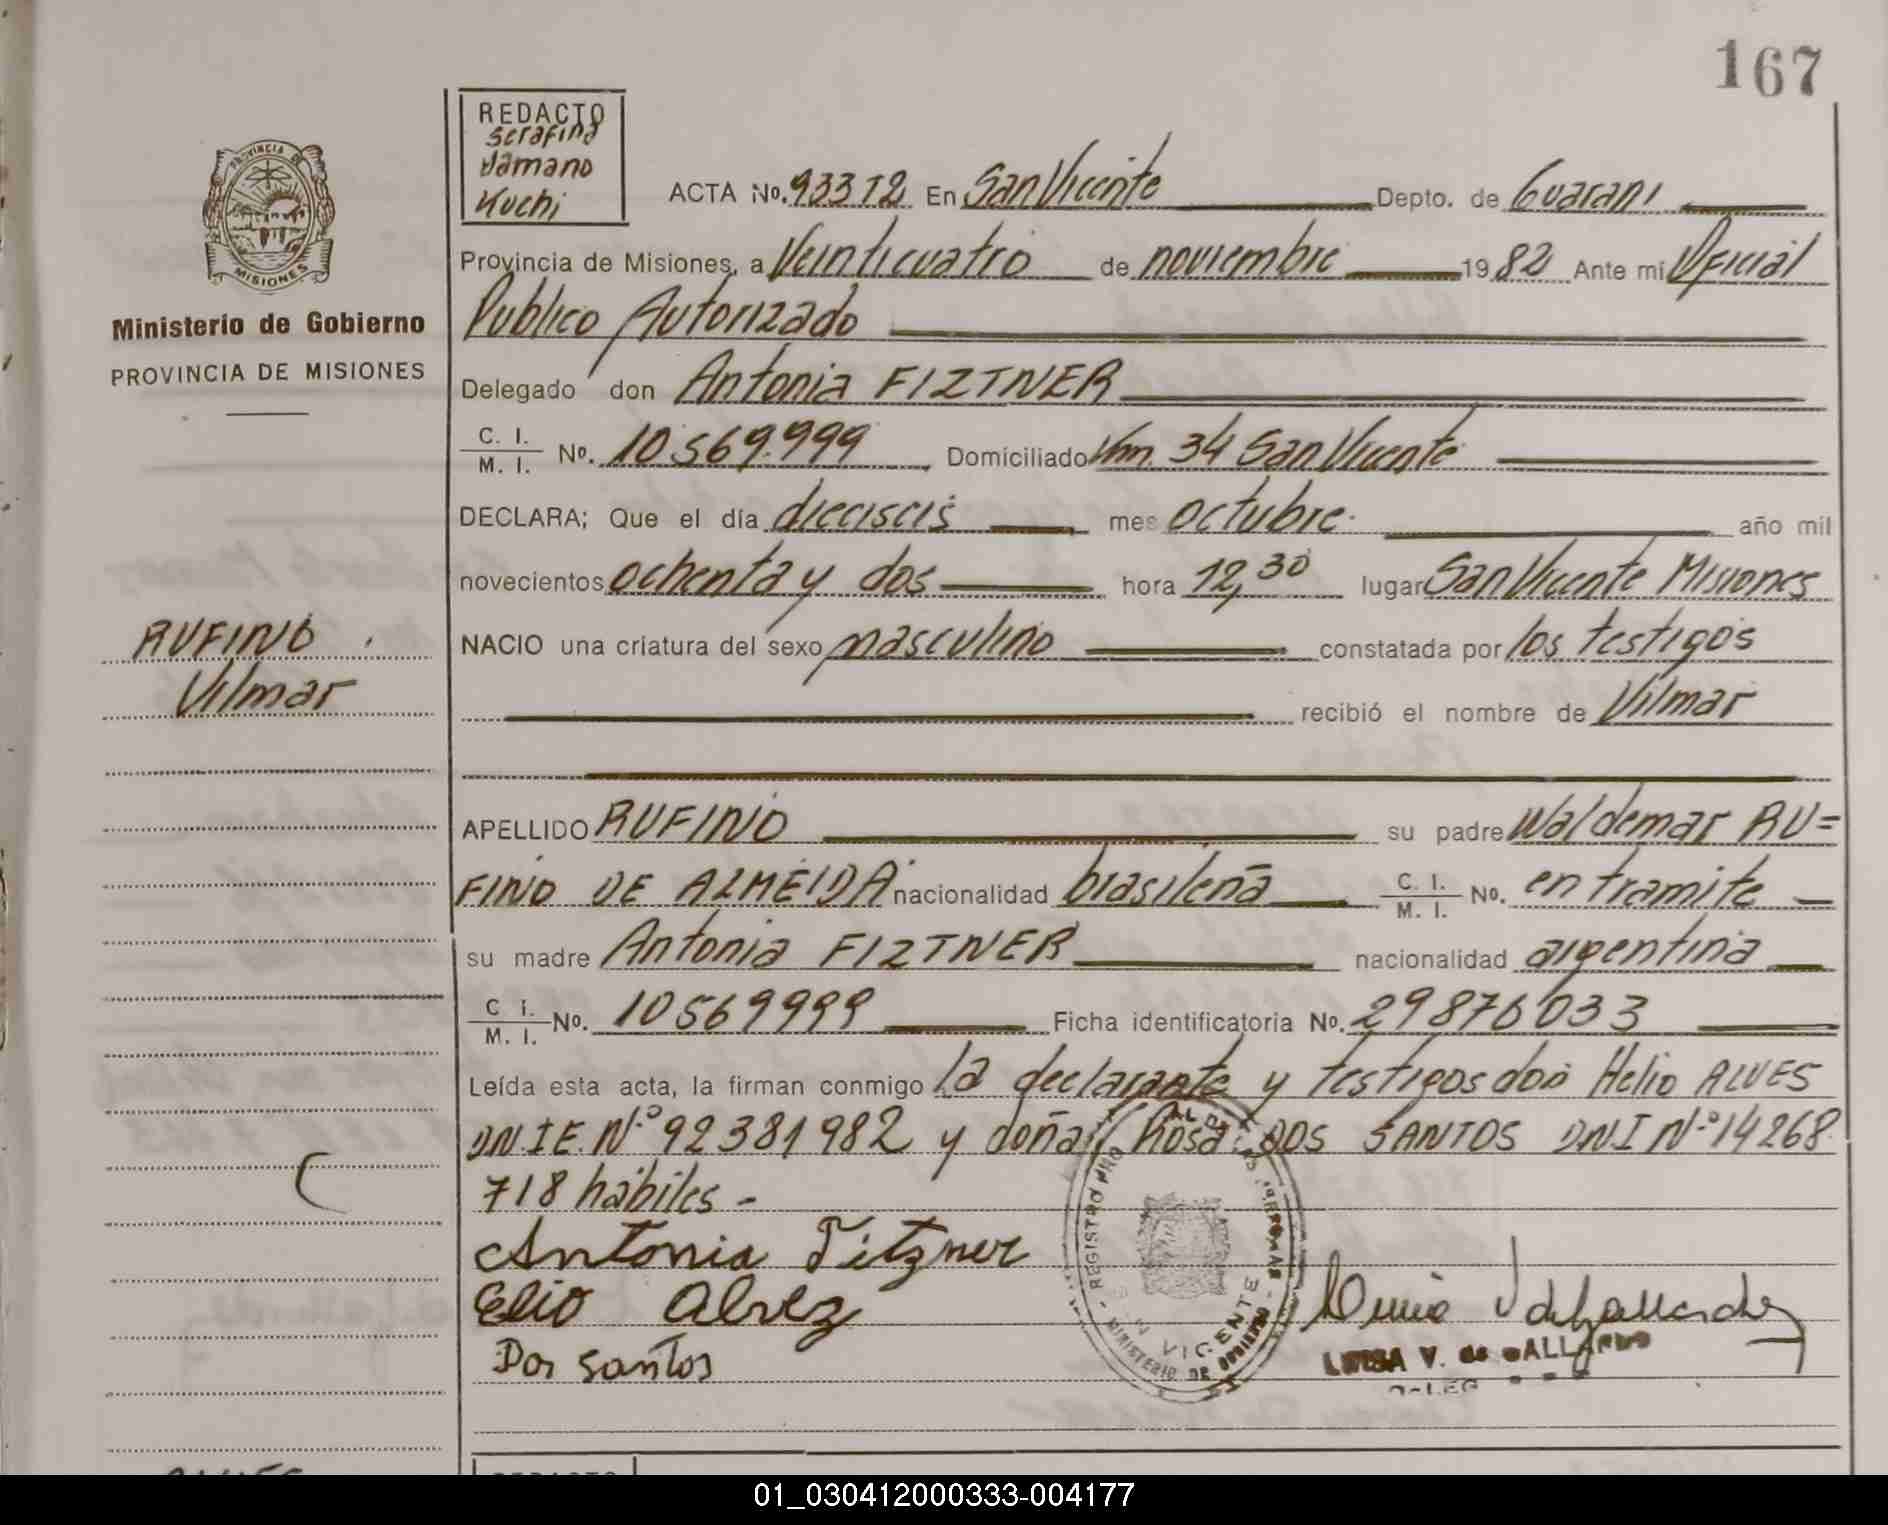 167
REDACTO
Serafina
Jamano
Kuchi
PROVINCIA DE
MISIONES
Ministerio de Gobierno
PROVINCIA DE MISIONES
ACTA No. 933 T2 En San Vicente Depto. de Guarani
Provincia de Misiones, a Veinticuatro de noviembre 1982 Ante mi Oficial
Publico Autorizado
Delegado don Antonia FIZTNER
C. I. / M. I. No. 10.569.999 Domiciliado Km. 34 San Vicente
DECLARA; Que el día dieciseis mes octubre. año mil
novecientos ochenta y dos hora 12,30 lugar San Vicente Misiones
NACIO una criatura del sexo masculino constatada por los testigos
recibió el nombre de Vilmar
RUFINO
Vilmar
APELLIDO RUFINO su padre Waldemar RU=
FINO DE ALMEIDA nacionalidad brasileña C. I. / M. I. No. en tramite
su madre Antonia FIZTNER nacionalidad argentina
C. I. / M. I. No. 10569999 Ficha identificatoria No. 29876033
Leída esta acta, la firman conmigo la declarante y testigos don Helio ALVES
DN.IE.N.º 92381982 y doña Rosa DOS SANTOS DNI N.º 14268
718 hábiles -
Antonia Fitzner
Elio Alvez
Dos Santos
REGISTRO PRO AL DE LAS PERSONAS
SAN VICENTE
MINISTERIO DE GOBIERNO
LUISA V. de GALLARDO
REDACTO
01_030412000333-004177